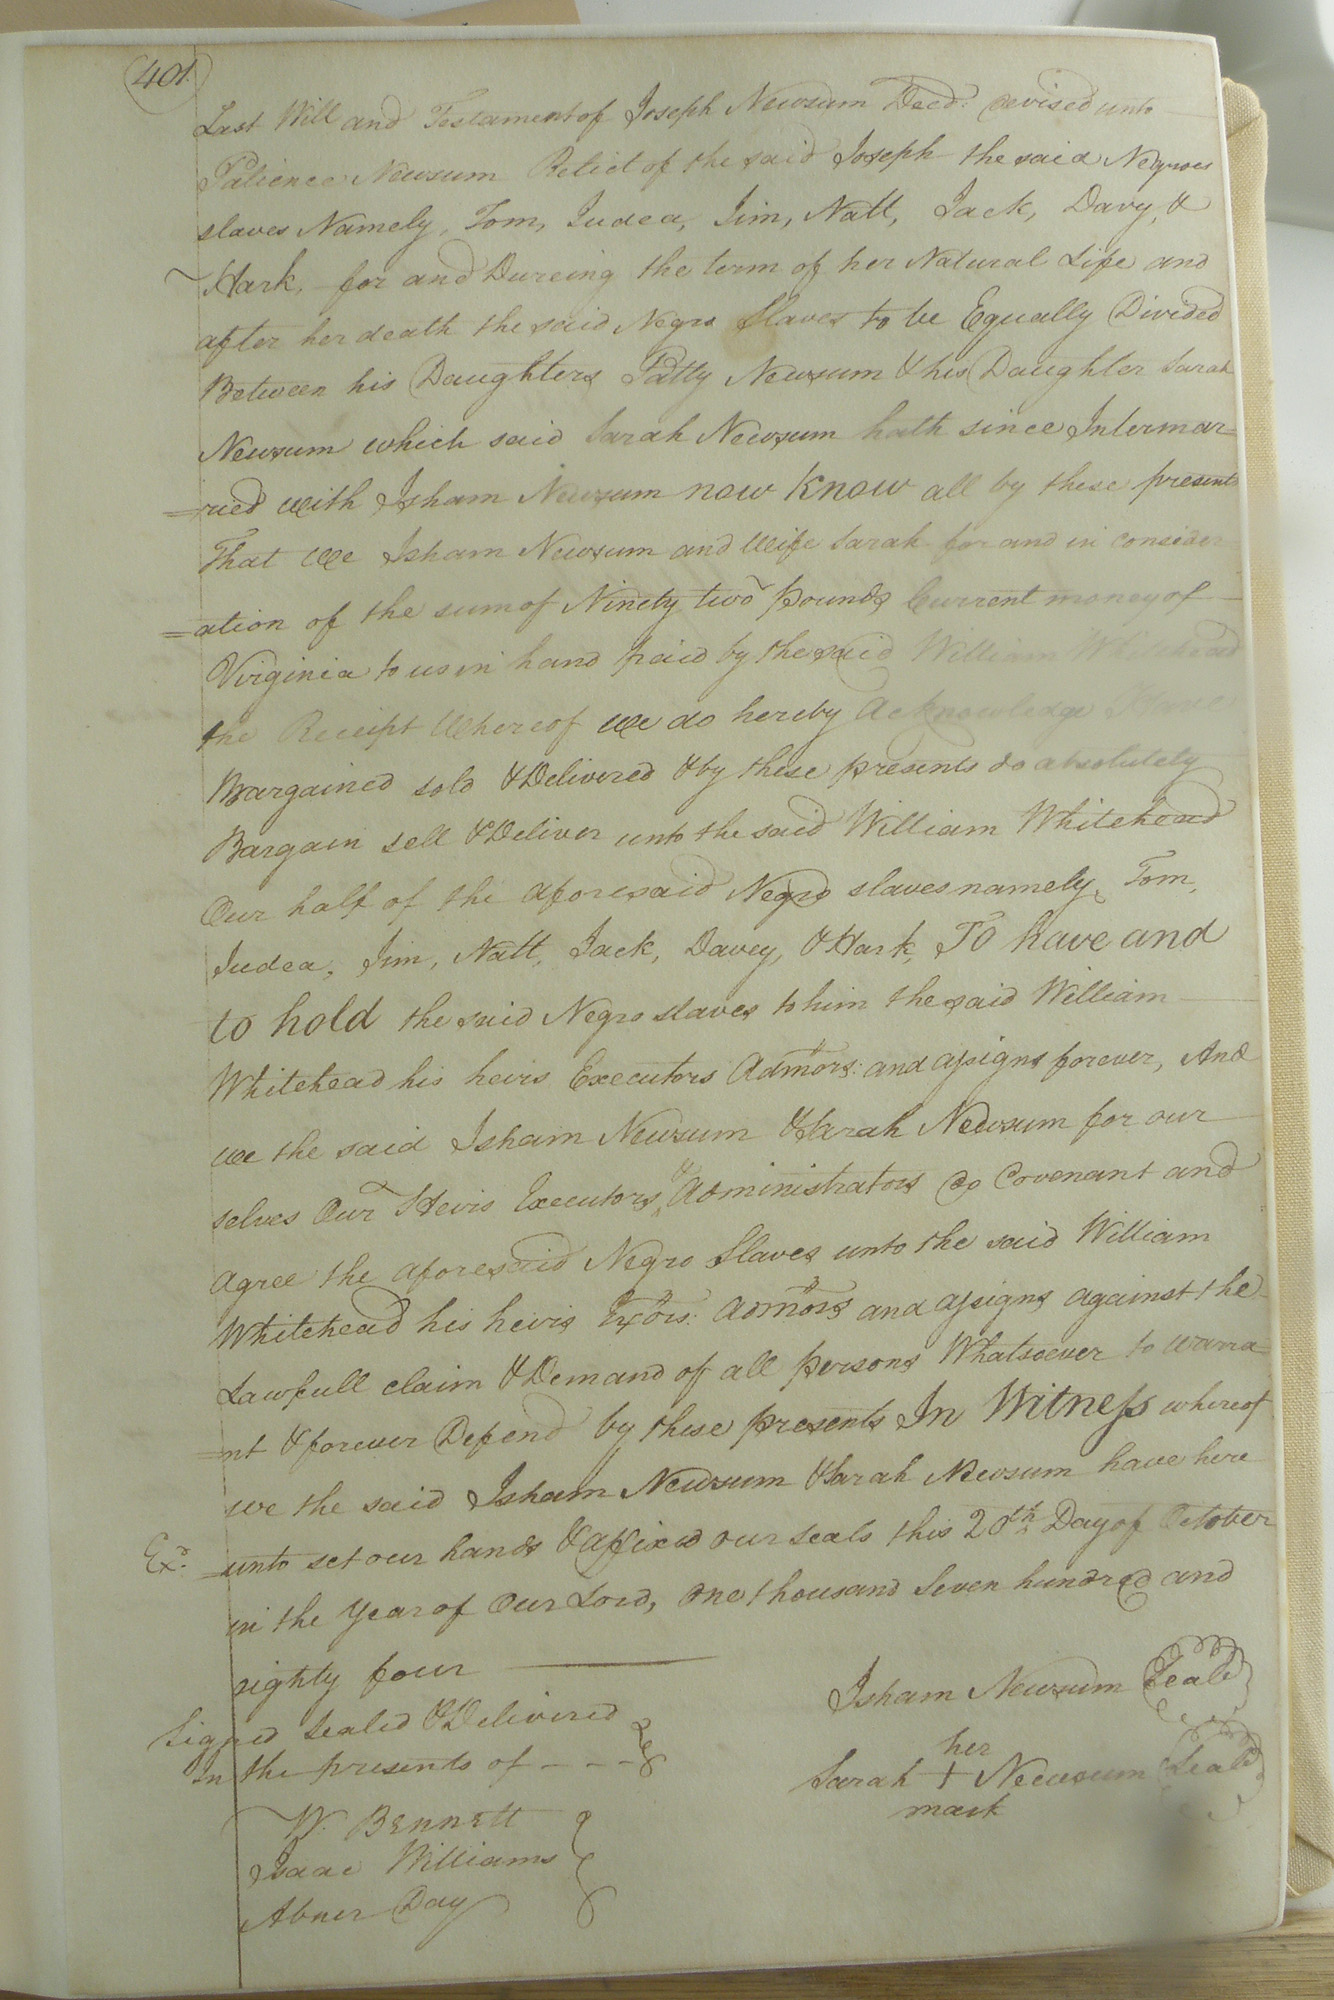 401.
Last Will and Testament of Joseph Newsum Decd: devised unto
Patience Newsum Relict of the said Joseph the said Negroes
slaves Namely, Tom, Judea, Jim, Natt, Jack, Davy, &
Hark, for and Dureing the term of her Natural Life and
after her death the said Negro Slaves to be Equally Divided
Between his Daughters Patty Newsum & his Daughter Sarah
Newsum which said Sarah Newsum hath since Intermar=
=ried with Isham Newsum now Know all by these presents
That we Isham Newsum and Wife Sarah for and in consider=
=ation of the sum of Ninety two pounds Current money of
Virginia to us in hand paid by the said William Whitehead
the Receipt Whereof we do hereby Acknowledge Have
Bargained sold & Delivered & by these presents do absolutely
Bargain sell & Deliver unto the said William Whitehead
Our half of the aforesaid Negro slaves namely, Tom,
Judea, Jim, Natt, Jack, Davey, & Hark, To have and
to hold the said Negro slaves to him the said William
Whitehead his heirs Executors Admors: and assigns forever, And
we the said Isham Newsum & Sarah Newsum for our
selves Our Heirs Executors & Administrators do Covenant and
agree the aforesaid Negro Slaves unto the said William
Whitehead his heirs Exors: Admors and assigns against the
Lawfull claim & Demand of all persons Whatsoever to warra=
=nt & forever Defend by these presents In Witness whereof
we the said Isham Newsum & Sarah Newsum have here
Exd. =unto set our hands & affixed our seals this 20th Day of October
in the Year of Our Lord, one thousand Seven hundred and
eighty four
Signed Sealed & Delivered
In the presents of - - -
Isham Newsum Seal
her
Sarah + Newsum Seal
mark
W. Bennett
Isaac Williams
Abner Day